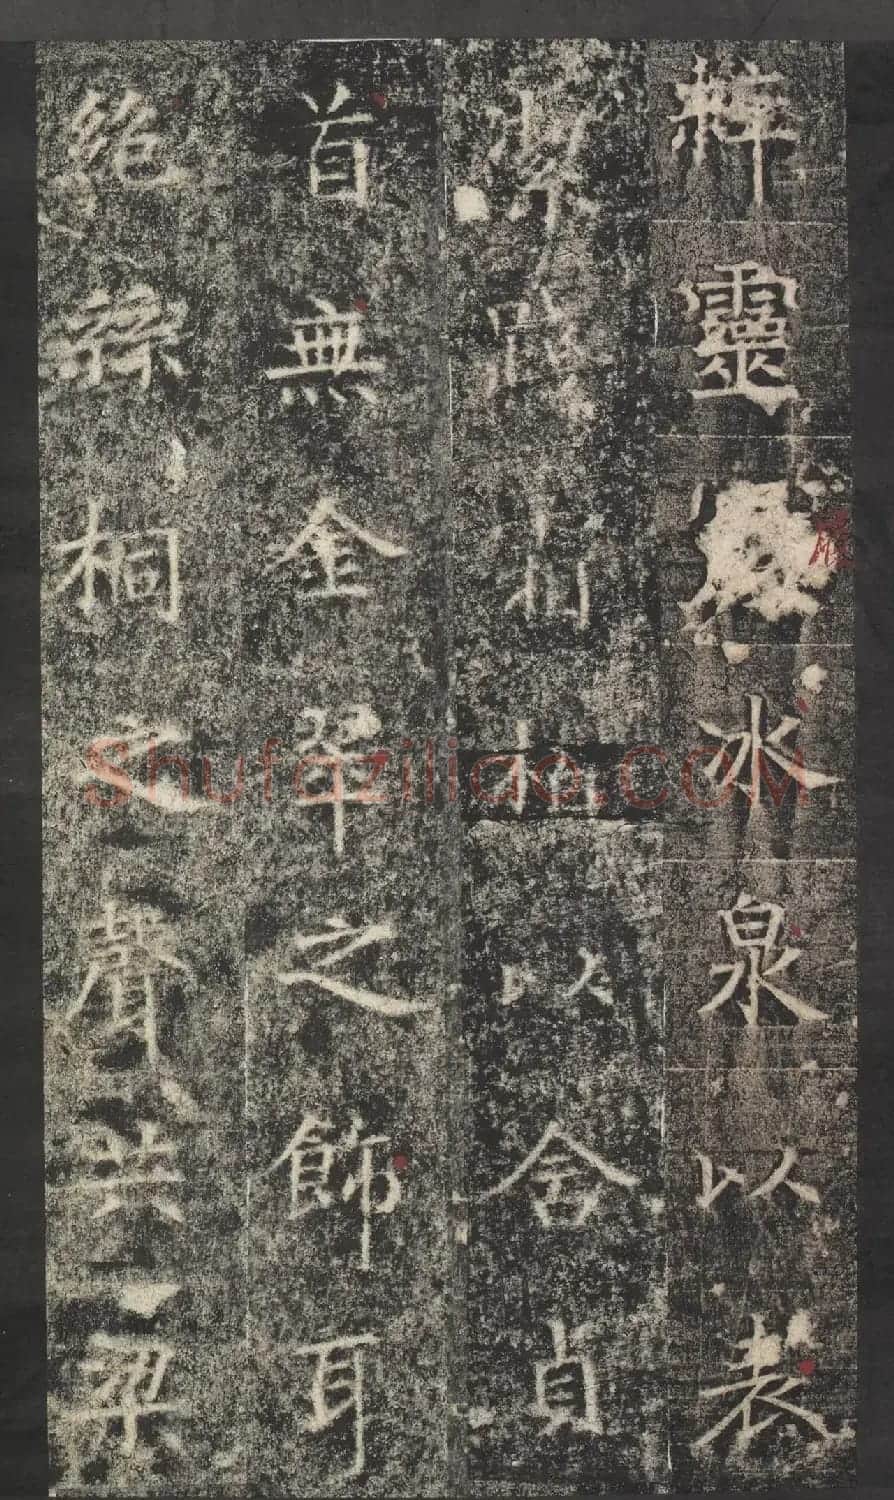 粹靈冰泉以表
潔以含貞
首無金翠之飾耳
絕絲桐之聲共梁
履
Shufaziliao.coM